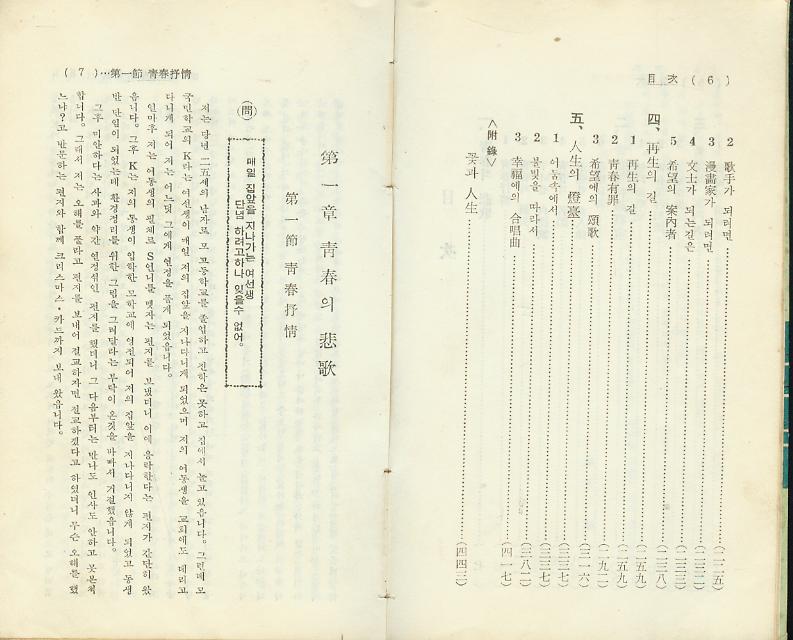 目次 (6)
2 歌手가 되려면 (二二五)
3 漫畵家가 되려면 (二三二)
4 文士가 되는길은 (二三三)
5 希望의 案內者 (二三八)
四、再生의 길 (二五九)
1 再生의 길 (二五九)
2 靑春有罪 (二九二)
3 希望에의 頌歌 (三一六)
五、人生의 燈臺 (三三七)
1 어둠속에서 (三三七)
2 불빛을 따라서 (三八二)
3 幸福에의 合唱曲 (四一七)
<附錄>
꽃과 人生 (四四三)
(7)…第一節 靑春抒情
第一章 靑春의 悲歌
第一節 靑春抒情
매일 집앞을 지나가는 여선생
단념 하려고하나 잊을수 없어。
(問)
저는 당년 二五세의 남자로 모 고등학교를 졸업하고 진학은 못하고 집에서 놀고 있읍니다。그런데 모
국민학교의 K라는 여선생이 매일 저의 집앞을 지나다니게 되었으며 저의 여동생을 교회에도 데리고
다니게 되어 저는 어느덧 그에게 연정을 품게 되었읍니다。
얼마후 저는 여동생의 필체로 S언니를 맺자는 편지를 보냈더니 이에 응락한다는 편지가 간단히 왔
읍니다。그후 K는 저의 동생이 입학한 모학교에 영전되어 저의 집앞을 지나다니지 않게 되었고 동생
반 담임이 되었는데 환경정리를 위한 그림을 그려달라는 부탁이 온것을 바빠서 거절했읍니다。
그후 미안하다는 사과와 약간 연정쉬인 편지를 했더니 그 다음부터는 만나도 인사도 안하고 못본척
합니다。그래서 저는 오해를 풀라고 편지를 보내어 절교하자면 절교하겠다고 하였더니 무슨 오해를 했
느냐? 고 반문하는 편지와 함께 크리스마스・카드까지 보내 왔읍니다。